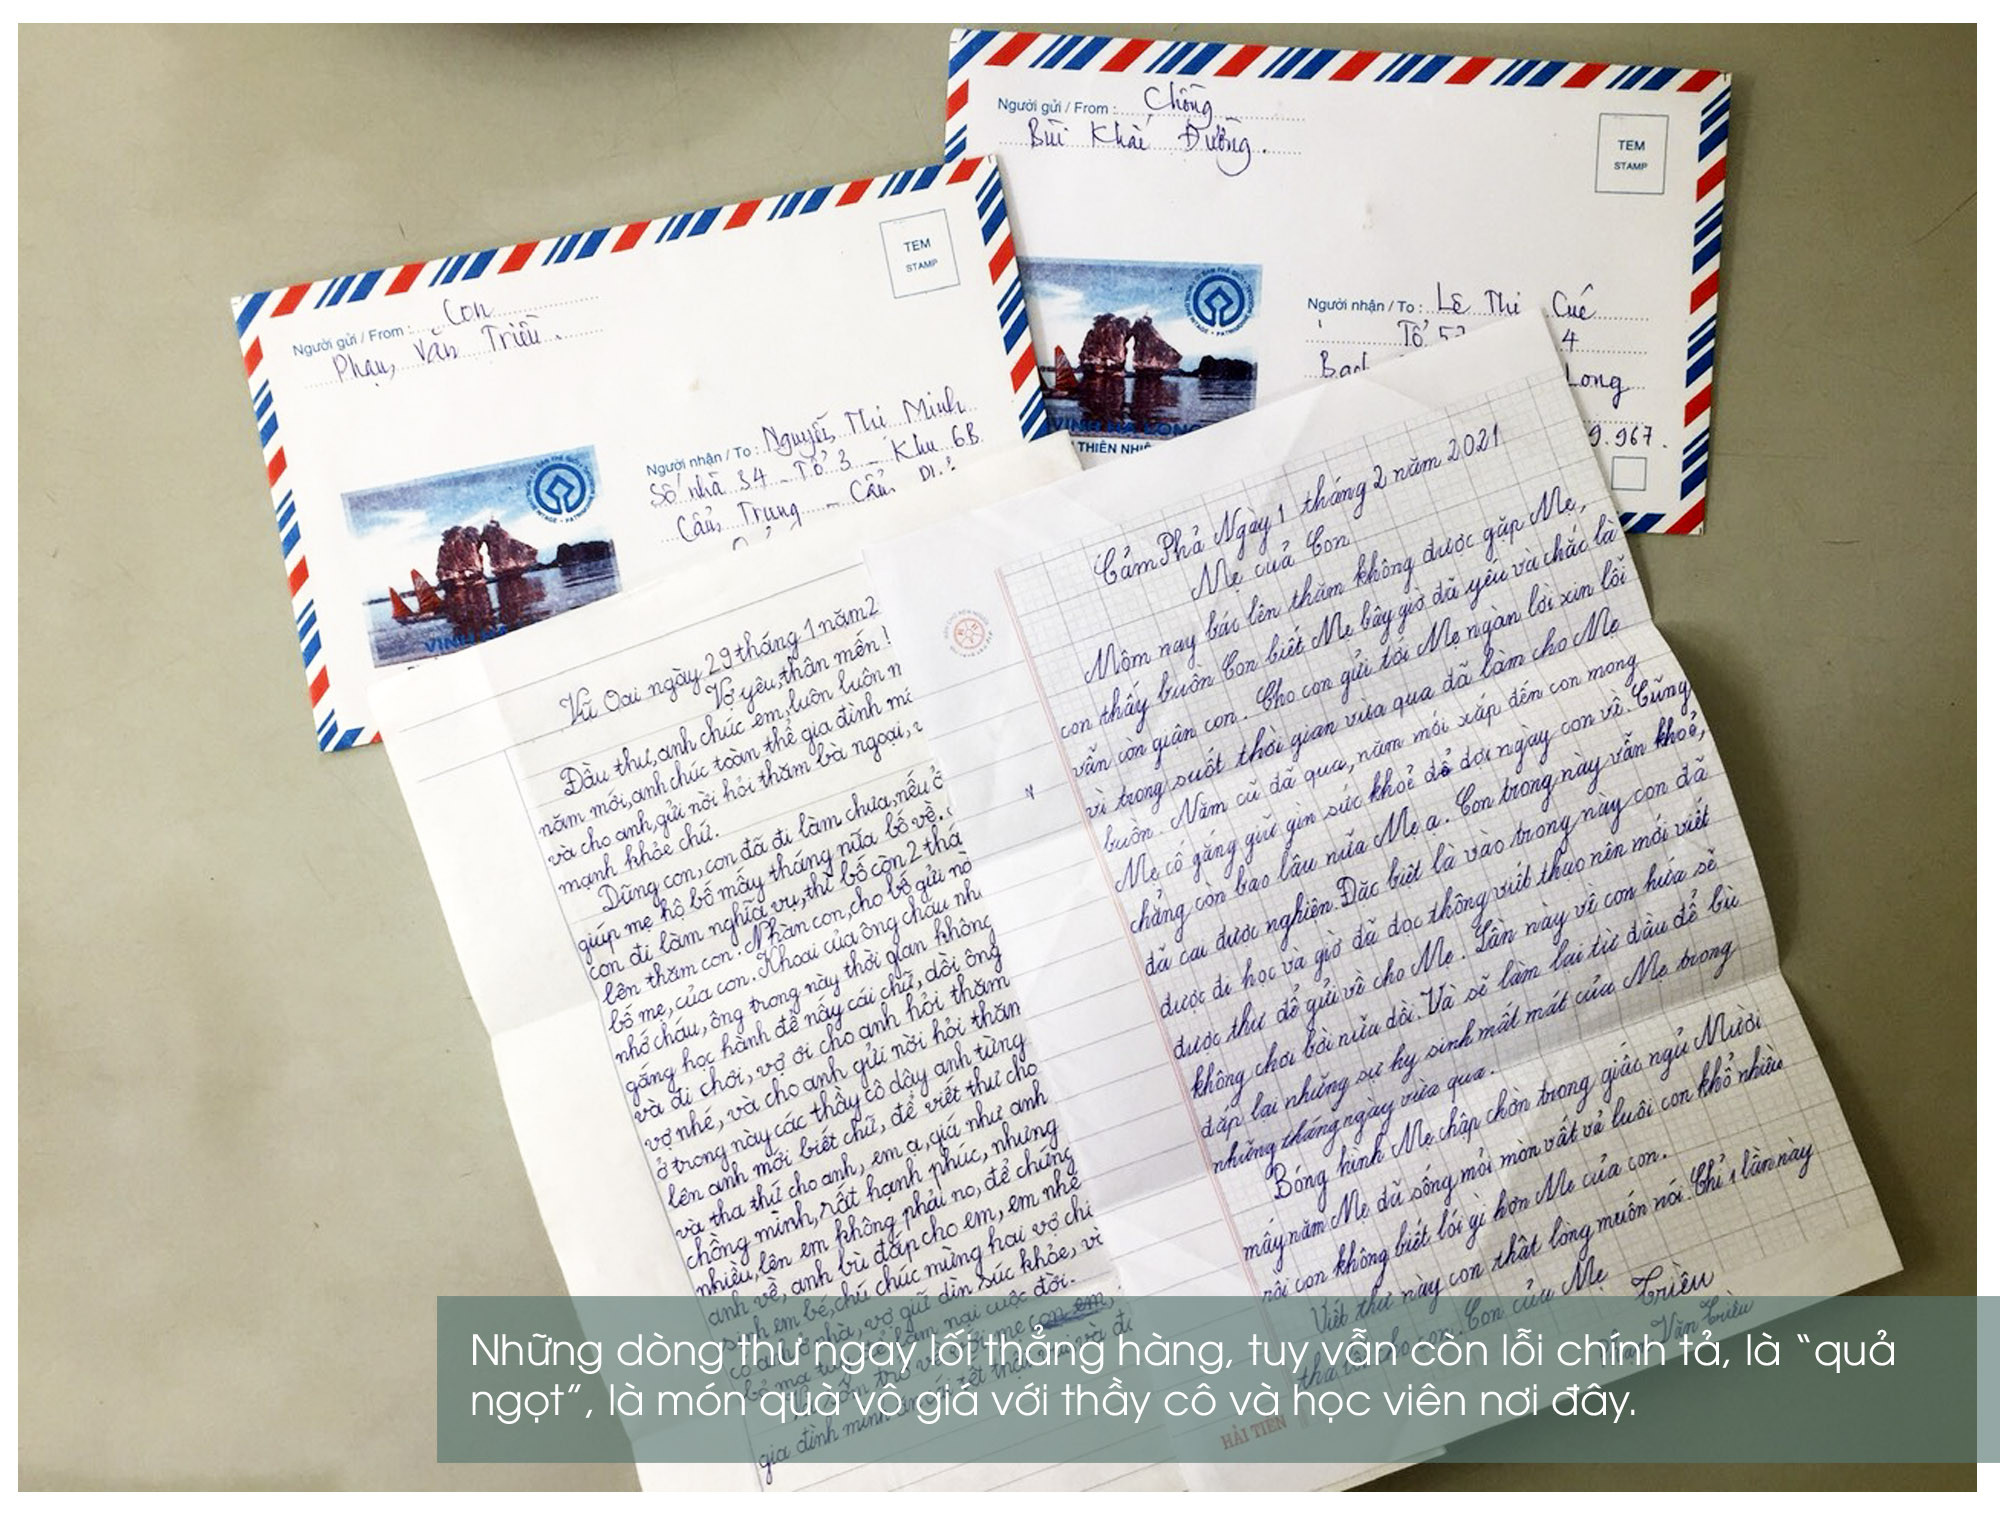 Người gửi / From : Chồng
Bùi Khải Đường.
TEM
STAMP
Người nhận / To : Lê Thị Cuế
Tổ 4
Long
9.967.
VỊNH HẠ LONG
THIÊN NHI
Người gửi / From : Con
Phạm Văn Triều.
TEM
STAMP
Người nhận / To : Nguyễn Thị Minh
Số nhà 34 - Tổ 3 - Khu 6B
Cẩm Trung - Cẩm
VỊNH HẠ
Vũ Oai ngày 29 tháng 1 năm 2
Vợ yêu, thân mến!
Đầu thư, anh chúc em, luôn luôn m
năm mới, anh chúc toàn thể gia đình mạ
và cho anh, gửi nời hỏi thăm bà ngoại,
mạnh khỏe chứ.
Dũng con, con đã đi làm chưa, nếu ở
giúp mẹ hộ bố mấy tháng nữa bố về.
con đi làm nghĩa vụ, thì bố còn 2 thá
lên thăm con. Nhàn con, cho bố gửi nờ
bố mẹ, của con. Khoai của ông cháu nh
nhớ cháu, ông trong này thời gian không
gắng học hành để nấy cái chữ, dồi ông
và đi chơi, vợ ơi cho anh hỏi thăm
vợ nhé, và cho anh gửi nời hỏi thăm
ở trong này các thầy cô dây anh từng
lên anh mới biết chữ, để viết thư cho
và tha thứ cho anh, em ạ, giá như anh
chồng mình, rất hạnh phúc, nhưng
nhiều, lên em không phải no, để chứng
anh về, anh bù đắp cho em, em nhé
sinh em bé, chú chúc mừng hai vợ ch
có anh ở nhà, vợ giữ dìn sức khỏe, v
bỏ ma tuý để làm nại cuộc đời.
sớm trở về với mẹ con em,
gia đình mình ăn cái tết thật vui và
Cẩm Phả Ngày 1 tháng 2 năm 2021
Mẹ cuả Con
Môm nay bác lên thăm không được gặp Mẹ,
con thấy buồn Con biết Mẹ bây giờ đã yếu và chắc là
vẫn còn giận con. Cho con gửi tới Mẹ ngàn lời xin lỗi
vì trong suốt thời gian vừa qua đã làm cho Mẹ
buồn. Năm cũ đã qua, năm mới xắp đến con mong
Mẹ cố gắng giữ gìn sức khoẻ để đợi ngày con về. Cũng
chẳng còn bao lâu nữa Mẹ ạ. Con trong này vẫn khoẻ,
đã cai được nghiện. Đăc biệt là vào trong này con đã
được đi học và giờ đã đọc thông viết thạo nên mới viết
được thư để gửi về cho Mẹ. Lần này về con hứa sẽ
không chơi bời nữa dồi. Và sẽ làm lại từ đầu để bù
đắp lại những sự hy sinh mất mát của Mẹ trong
những tháng ngày vừa qua.
Bóng hình Mẹ chập chờn trong giấc ngủ Mười
mấy năm Mẹ đã sống mỏi mòn vất vả luôi con khổ nhiều
rồi con không biết lói gì hơn Mẹ của con.
Viết thư này con thật lòng muốn nói. Chỉ 1 lần này
tha thứ cho con. Con của Mẹ
Triều
Phạm Văn Triều
HẢI TIẾN
Những dòng thư ngay lối thẳng hàng, tuy vẫn còn lỗi chính tả, là “quả
ngọt”, là món quà vô giá với thầy cô và học viên nơi đây.